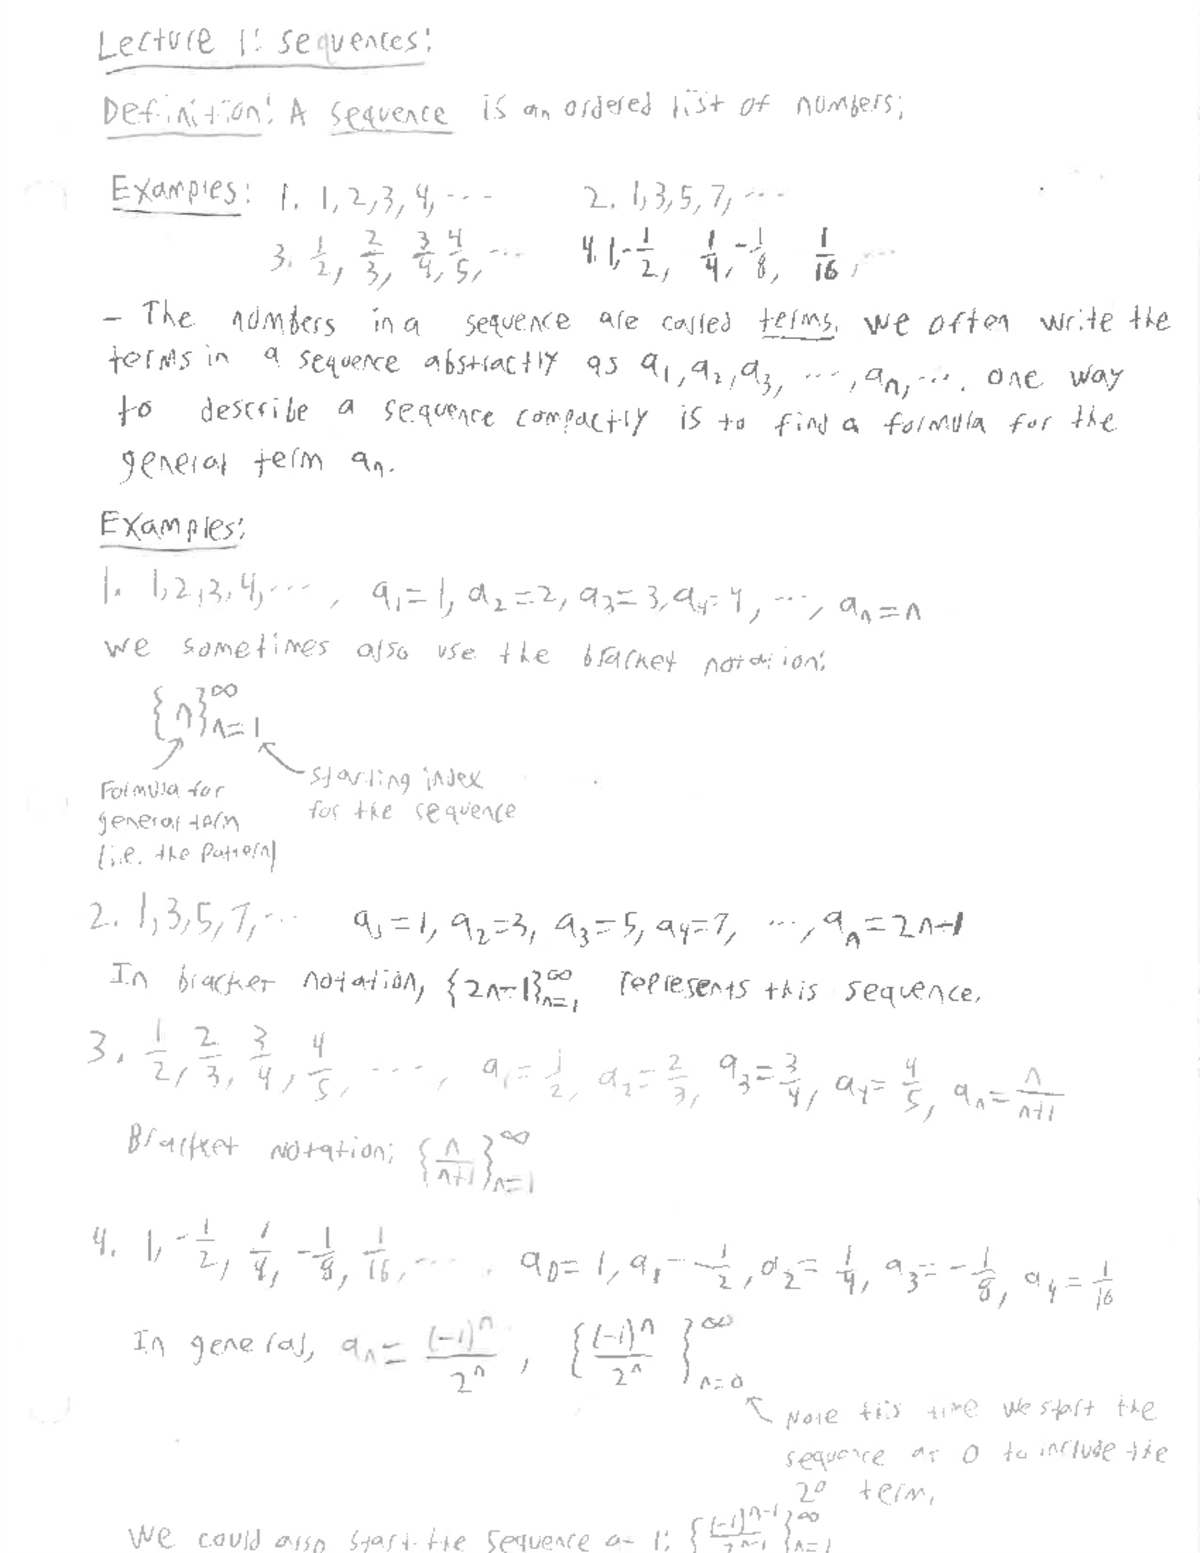 Lecture 1: Sequences:
Definition: A sequence is an ordered list of numbers;
Examples: 1. 1, 2, 3, 4, ··· 2. 1, 3, 5, 7, ···
3. 1/2, 2/3, 3/4, 4/5, ··· 4. 1, -1/2, 1/4, -1/8, 1/16, ···
- The numbers in a sequence are called terms. We often write the
terms in a sequence abstractly as a₁, a₂, a₃, ···, aₙ, ···. One way
to describe a sequence compactly is to find a formula for the
general term aₙ.
Examples:
1. 1, 2, 3, 4, ···, a₁ = 1, a₂ = 2, a₃ = 3, a₄ = 4, ···, aₙ = n
We sometimes also use the bracket notation:
{n}^∞_{n=1}
Formula for
general term
(i.e. the pattern)
starting index
for the sequence
2. 1, 3, 5, 7, ··· a₁ = 1, a₂ = 3, a₃ = 5, a₄ = 7, ···, aₙ = 2n-1
In bracket notation, {2n-1}^∞_{n=1} represents this sequence.
3. 1/2, 2/3, 3/4, 4/5, ···, a₁ = 1/2, a₂ = 2/3, a₃ = 3/4, a₄ = 4/5, aₙ = n/(n+1)
Bracket notation; {n/(n+1)}^∞_{n=1}
4. 1, -1/2, 1/4, -1/8, 1/16, ···. a₀ = 1, a₁ = -1/2, a₂ = 1/4, a₃ = -1/8, a₄ = 1/16
In general, aₙ = (-1)^n/2^n, {(-1)^n/2^n}^∞_{n=0}
Note this time we start the
sequence at 0 to include the
2⁰ term.
We could also start the sequence at 1: {(-1)^{n-1}/2^{n-1}}^∞_{n=1}